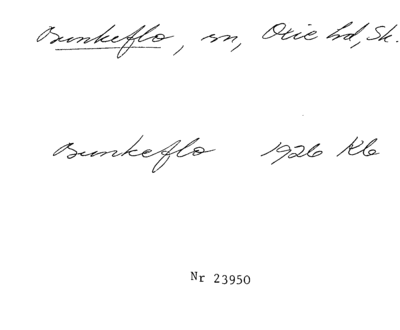 Bunkeflo, sn, Oxie hd, Sk.
Bunkeflo 1926 Kb
Nr 23950